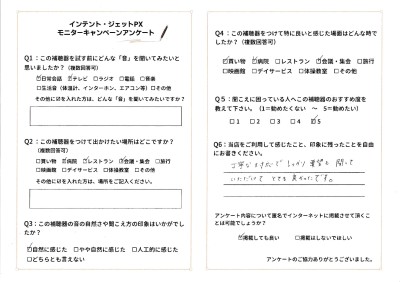 インテント・ジェットPX
モニターキャンペーンアンケート
Q1：この補聴器を試す前にどんな「音」を聞いてみたいと
思いましたか？（複数回答可）
☑日常会話 ☑テレビ □ラジオ □電話 □音楽
□生活音（体温計、インターホン、エアコン等）□その他
その他に☑を入れた方は、どんな「音」を聞いてみたいですか？
Q2：この補聴器をつけて出かけたい場所はどこですか？
（複数回答可）
☑買い物 ☑病院 ☑レストラン ☑会議・集会 □旅行
□映画館 □デイサービス □体操教室 □その他
その他に☑を入れた方は、場所をご記入ください。
Q3：この補聴器の音の自然さや聞こえ方の印象はいかがでし
たか？
☑自然に感じた □やや自然に感じた □人工的に感じた
□どちらとも言えない
Q4：この補聴器をつけて特に良いと感じた場面はどんな時で
したか？（複数回答可）
☑買い物 ☑病院 □レストラン ☑会議・集会 □旅行
□映画館 □デイサービス □体操教室 □その他
Q5：聞こえに困っている人へこの補聴器のおすすめ度を
教えて下さい。（1＝勧めたくない ～ 5＝勧めたい）
□1 □2 □3 □4 ☑5
Q6：当店をご利用して感じたこと、印象に残ったことを自由
にお書きください。
丁寧な対応で しっかり 要望を 聞いて
いただけて とても 良かったです。
アンケート内容について匿名でインターネットに掲載させて頂くこ
とは可能でしょうか？
☑掲載しても良い □掲載はしないでほしい
アンケートのご協力ありがとうございました。